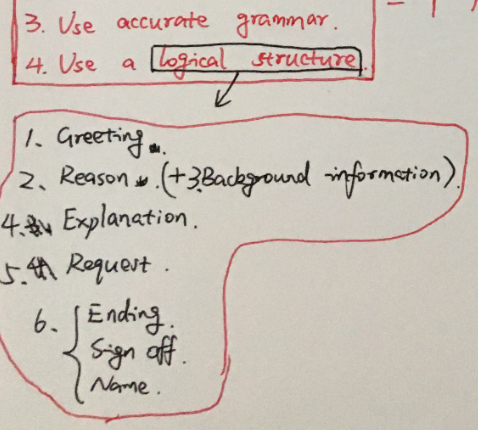 3. Use accurate grammar.
4. Use a logical structure.
1. Greeting.
2. Reason. (+3.Background information).
4. Explanation.
5. Request.
6. Ending.
Sign off.
Name.